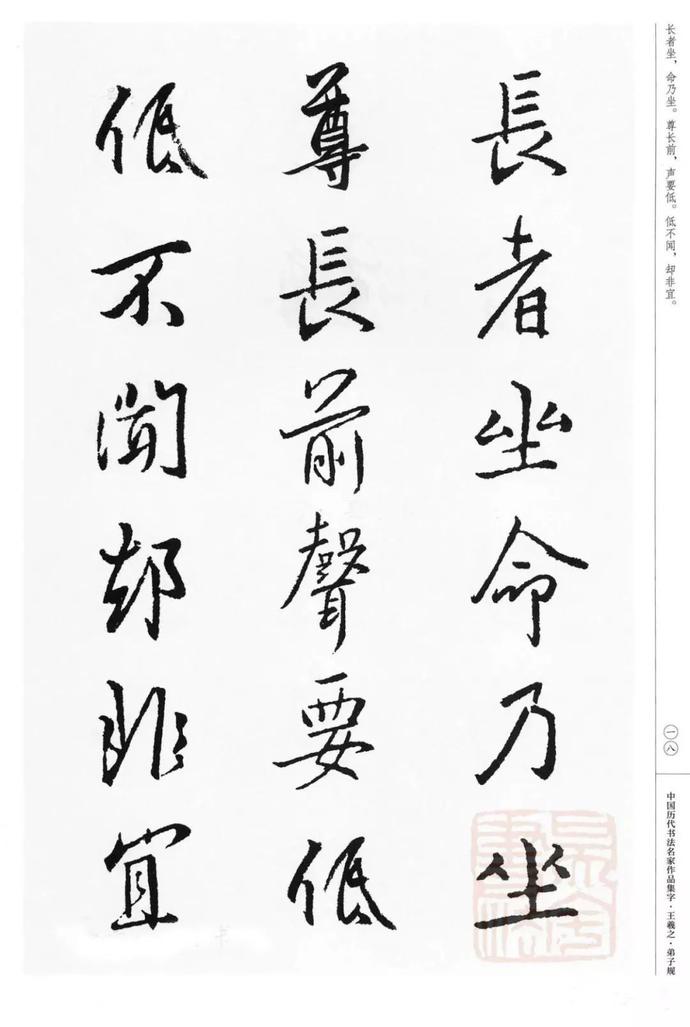 长者坐，命乃坐。尊长前，声要低。低不闻，却非宜。
長者坐命乃坐
尊長前聲要低
低不聞却非宜
一八
中国历代书法名家作品集字·王羲之·弟子规